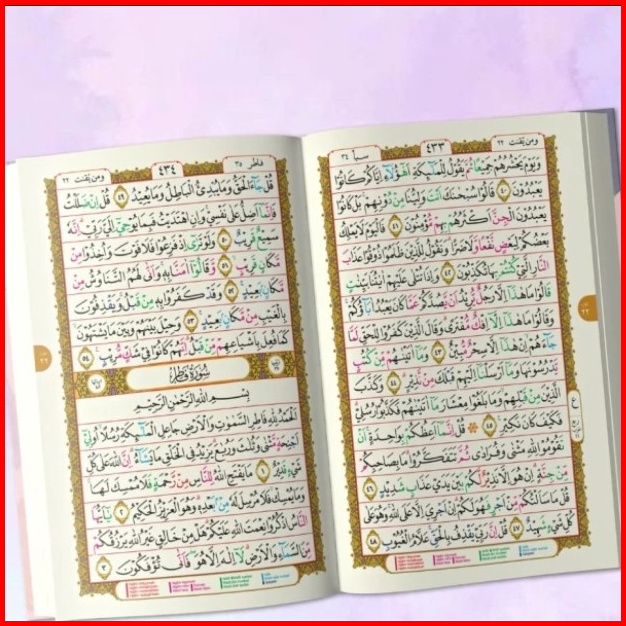 ومن يقنت ٢٢ ٤٣٣ سبأ ٣٤
وَيَوْمَ يَحْشُرُهُمْ جَمِيْعًا ثُمَّ يَقُوْلُ لِلْمَلٰۤىِٕكَةِ اَهٰٓؤُلَاۤءِ اِيَّاكُمْ كَانُوْا
يَعْبُدُوْنَ ٤٠ قَالُوْا سُبْحٰنَكَ اَنْتَ وَلِيُّنَا مِنْ دُوْنِهِمْ بَلْ كَانُوْا
يَعْبُدُوْنَ الْجِنَّ اَكْثَرُهُمْ بِهِمْ مُّؤْمِنُوْنَ ٤١ فَالْيَوْمَ لَا يَمْلِكُ
بَعْضُكُمْ لِبَعْضٍ نَّفْعًا وَّلَا ضَرًّا وَنَقُوْلُ لِلَّذِيْنَ ظَلَمُوْا ذُوْقُوْا عَذَابَ
النَّارِ الَّتِيْ كُنْتُمْ بِهَا تُكَذِّبُوْنَ ٤٢ وَاِذَا تُتْلٰى عَلَيْهِمْ اٰيٰتُنَا بَيِّنٰتٍ
قَالُوْا مَا هٰذَآ اِلَّا رَجُلٌ يُّرِيْدُ اَنْ يَّصُدَّكُمْ عَمَّا كَانَ يَعْبُدُ اٰبَاۤؤُكُمْ
وَقَالُوْا مَا هٰذَآ اِلَّآ اِفْكٌ مُّفْتَرًى وَقَالَ الَّذِيْنَ كَفَرُوْا لِلْحَقِّ لَمَّا
جَاۤءَهُمْ اِنْ هٰذَآ اِلَّا سِحْرٌ مُّبِيْنٌ ٤٣ وَمَآ اٰتَيْنٰهُمْ مِّنْ كُتُبٍ
يَّدْرُسُوْنَهَا وَمَآ اَرْسَلْنَآ اِلَيْهِمْ قَبْلَكَ مِنْ نَّذِيْرٍ ٤٤ وَكَذَّبَ
الَّذِيْنَ مِنْ قَبْلِهِمْ وَمَا بَلَغُوْا مِعْشَارَ مَآ اٰتَيْنٰهُمْ فَكَذَّبُوْا رُسُلِيْ
فَكَيْفَ كَانَ نَكِيْرِ ٤٥ قُلْ اِنَّمَآ اَعِظُكُمْ بِوَاحِدَةٍ اَنْ
تَقُوْمُوْا لِلّٰهِ مَثْنٰى وَفُرَادٰى ثُمَّ تَتَفَكَّرُوْا مَا بِصَاحِبِكُمْ
مِّنْ جِنَّةٍ اِنْ هُوَ اِلَّا نَذِيْرٌ لَّكُمْ بَيْنَ يَدَيْ عَذَابٍ شَدِيْدٍ ٤٦
قُلْ مَا سَاَلْتُكُمْ مِّنْ اَجْرٍ فَهُوَ لَكُمْ اِنْ اَجْرِيَ اِلَّا عَلَى اللّٰهِ وَهُوَ عَلٰى
كُلِّ شَيْءٍ شَهِيْدٌ ٤٧ قُلْ اِنَّ رَبِّيْ يَقْذِفُ بِالْحَقِّ عَلَّامُ الْغُيُوْبِ ٤٨
٢٢
ع
فاطر ٣٥ ٤٣٤ ومن يقنت ٢٢
قُلْ جَاۤءَ الْحَقُّ وَمَا يُبْدِئُ الْبَاطِلُ وَمَا يُعِيْدُ ٤٩ قُلْ اِنْ ضَلَلْتُ
فَاِنَّمَآ اَضِلُّ عَلٰى نَفْسِيْ وَاِنِ اهْتَدَيْتُ فَبِمَا يُوْحِيْٓ اِلَيَّ رَبِّيْ اِنَّهٗ
سَمِيْعٌ قَرِيْبٌ ٥٠ وَلَوْ تَرٰٓى اِذْ فَزِعُوْا فَلَا فَوْتَ وَاُخِذُوْا مِنْ
مَّكَانٍ قَرِيْبٍ ٥١ وَّقَالُوْٓا اٰمَنَّا بِهٖ وَاَنّٰى لَهُمُ التَّنَاوُشُ مِنْ
مَّكَانٍ بَعِيْدٍ ٥٢ وَّقَدْ كَفَرُوْا بِهٖ مِنْ قَبْلُ وَيَقْذِفُوْنَ
بِالْغَيْبِ مِنْ مَّكَانٍ بَعِيْدٍ ٥٣ وَحِيْلَ بَيْنَهُمْ وَبَيْنَ مَا يَشْتَهُوْنَ
كَمَا فُعِلَ بِاَشْيَاعِهِمْ مِّنْ قَبْلُ اِنَّهُمْ كَانُوْا فِيْ شَكٍّ مُّرِيْبٍ ٥٤
سُوْرَةُ فَاطِرٍ
بِسْمِ اللّٰهِ الرَّحْمٰنِ الرَّحِيْمِ
اَلْحَمْدُ لِلّٰهِ فَاطِرِ السَّمٰوٰتِ وَالْاَرْضِ جَاعِلِ الْمَلٰۤىِٕكَةِ رُسُلًا اُولِيْٓ
اَجْنِحَةٍ مَّثْنٰى وَثُلٰثَ وَرُبٰعَ يَزِيْدُ فِى الْخَلْقِ مَا يَشَاۤءُ اِنَّ اللّٰهَ عَلٰى كُلِّ
شَيْءٍ قَدِيْرٌ ١ مَا يَفْتَحِ اللّٰهُ لِلنَّاسِ مِنْ رَّحْمَةٍ فَلَا مُمْسِكَ لَهَا
وَمَا يُمْسِكْ فَلَا مُرْسِلَ لَهٗ مِنْۢ بَعْدِهٖ وَهُوَ الْعَزِيْزُ الْحَكِيْمُ ٢ يٰٓاَيُّهَا
النَّاسُ اذْكُرُوْا نِعْمَتَ اللّٰهِ عَلَيْكُمْ هَلْ مِنْ خَالِقٍ غَيْرُ اللّٰهِ يَرْزُقُكُمْ
مِّنَ السَّمَاۤءِ وَالْاَرْضِ لَآ اِلٰهَ اِلَّا هُوَ فَاَنّٰى تُؤْفَكُوْنَ ٣
٢٢